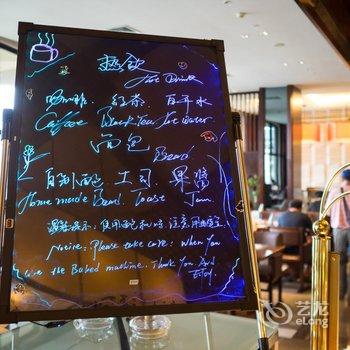 热饮
Hot Drink
咖啡 红茶 百开水
Coffee Black tea Hot water
面包
Bread
自制面包 土司 果酱
Home made Bread. Toast Jam
温馨提示: 使用 时, 注意
Notice: Please take care: When you
use the Baked machine. Thank You And
Enjoy
艺龙
eLong